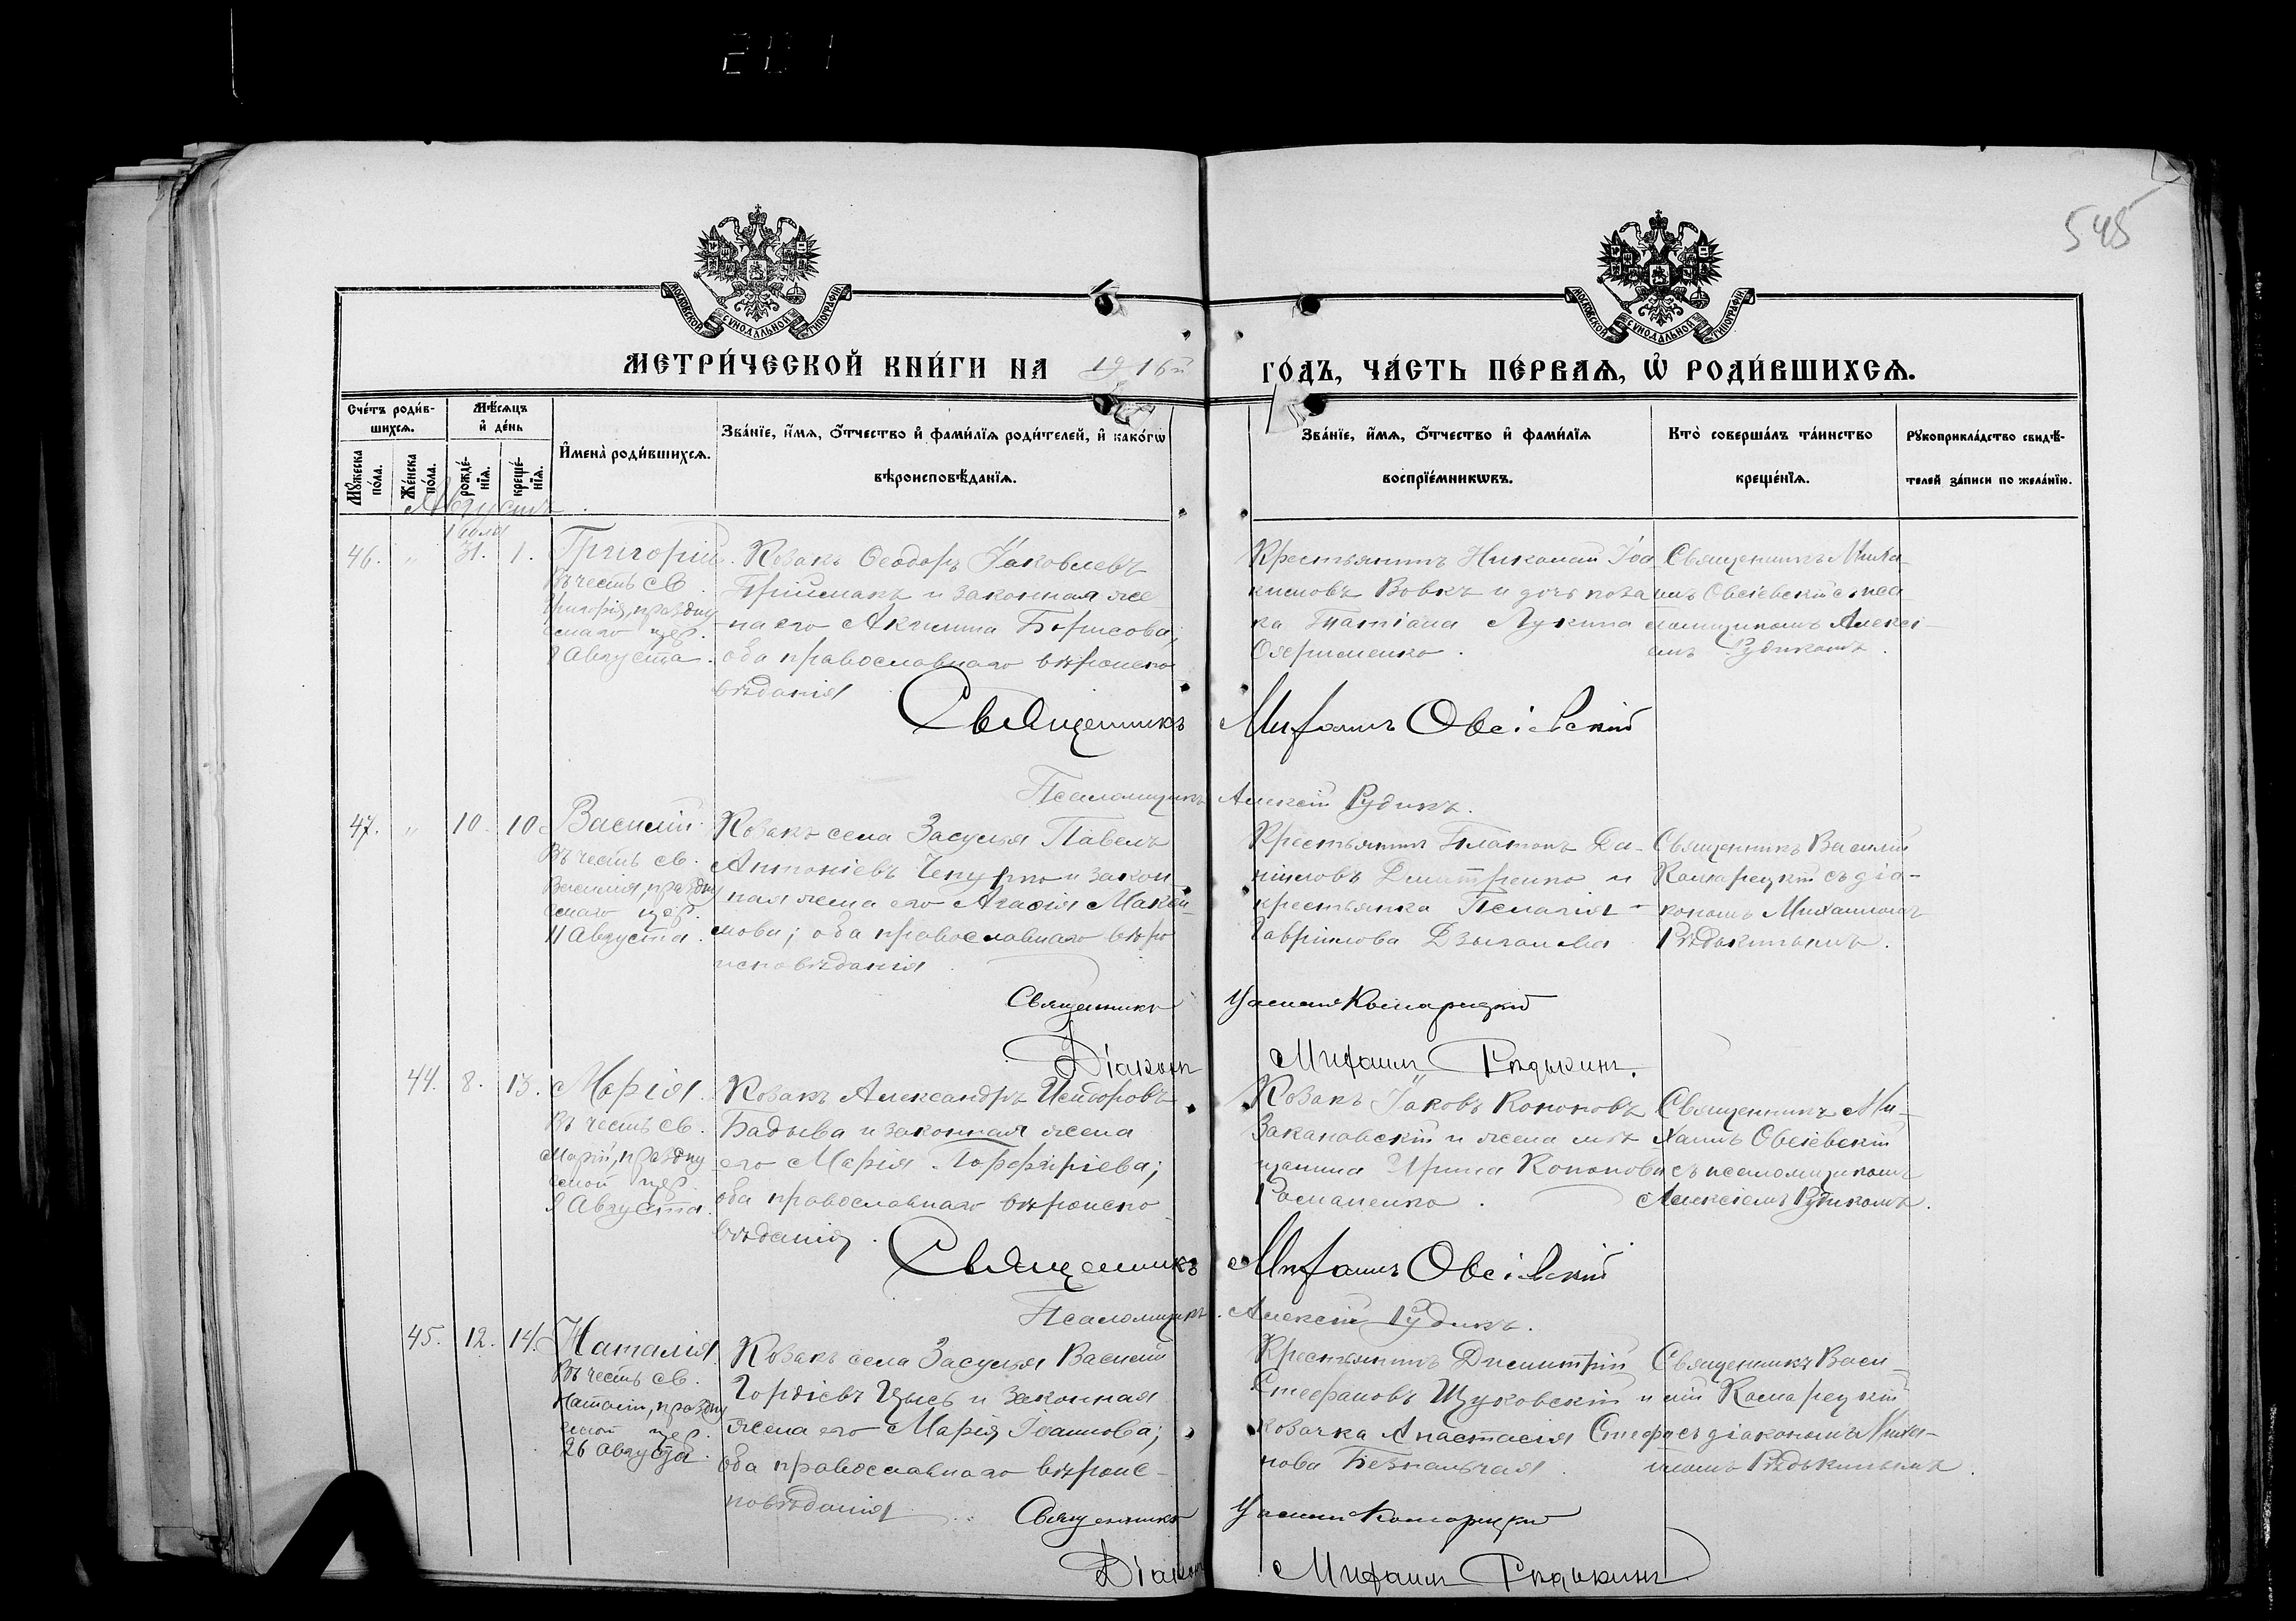 201
545
МОСКОВСКОЙ СѴНОДАЛЬНОЙ ТИПОГРАФІИ
МОСКОВСКОЙ СѴНОДАЛЬНОЙ ТИПОГРАФІИ
МЕТРИ́ЧЕСКОЙ КНИ́ГИ НА 1916й ГО́ДЪ, ЧА́СТЬ ПЕ́РВАѦ, Ѡ РОДИ́ВШИХСѦ.
Сче́тъ роди́в-
шихсѧ.
Мꙋ́жеска по́ла.
Же́нска по́ла.
Мѣ́сѧцъ и де́нь
рожде́-
нїѧ.
креще́-
нїѧ.
Имена̀ роди́вшихсѧ.
Зва́нїе, и́мѧ, о́тчество и фами́лїѧ роди́телей, и како́гѡ
вѣроисповѣ́данїѧ.
Зва́нїе, и́мѧ, о́тчество и фами́лїѧ
воспрїе́мникѡвъ.
Кто̀ соверша́лъ та́инство
креще́нїѧ.
Рꙋкоприкла́дство свидѣ́-
телей за́писи по жела́нїю.
Августъ
Іюля
46. " 31. 1.
Григорій
Въ честь св.
Григорія, праздну
емаго цер.
8 Августа.
Козакъ Ѳеодоръ Іаковлевъ
Приймакъ и законная же-
на его Акилина Борисова;
оба православнаго вѣроиспо
вѣданія
Крестьянинъ Николай Іоа
кимовъ Вовкъ и дочь коза
ка Татіана Лукина
Священникъ Миха-
илъ Овсіевскій с псал
помщикомъ Алексі-
емъ Рудикомъ.
Священникъ Михаилъ Овсіевскій
Псаломщикъ Алексій Рудикъ.
47. " 10. 10.
Василій
Въ честь св.
Василія, праздну
емаго цер.
11 Августа.
Козакъ села Засулья Павелъ
Антоніевъ Чепурко и закон-
ная жена его Агаѳія Макси-
мова; оба православнаго вѣро
исповѣданія
Крестьянинъ Платонъ Да-
ніиловъ Дмитренко и
крестьянка Пелагія
Гавріилова
Священникъ Василій
Комарецкій съ діа-
кономъ Михаиломъ
Рѣдькинымъ.
Священникъ Василій Комарецкій
Діаконъ Михаилъ Рѣдькинъ.
44. 8. 13.
Марія
Въ честь св.
Маріи, праздну
емой цер.
9 Августа.
Козакъ Александръ Исидоровъ
Бадьева и законная жена
его Марія Порфиріева;
оба православнаго вѣроиспо
вѣданія.
Козакъ Іаковъ Кононовъ
Закановскій и жена мѣ
щанина Ирина Кононова
Романенко.
Священникъ Ми-
хаилъ Овсіевскій
съ псаломщикомъ
Алексіемъ Рудикомъ.
Священникъ Михаилъ Овсіевскій
Псаломщикъ Алексій Рудикъ.
45. 12. 14.
Наталія
Въ честь св.
Наталіи, праздну
емой цер.
26 Августа.
Козакъ села Засулья Василій
Гордіевъ Цысь и законная
жена его Марія Іоаннова;
оба православнаго вѣроис-
повѣданія
Крестьянинъ Димитрій
Стефановъ Щуковскій и
козачка Анастасія Стефа
нова Безпальчая.
Священникъ Васи-
лій Комарецкій
съ діакономъ Миха-
иломъ Рѣдькинымъ.
Священникъ Василій Комарецкій
Діаконъ Михаилъ Рѣдькинъ